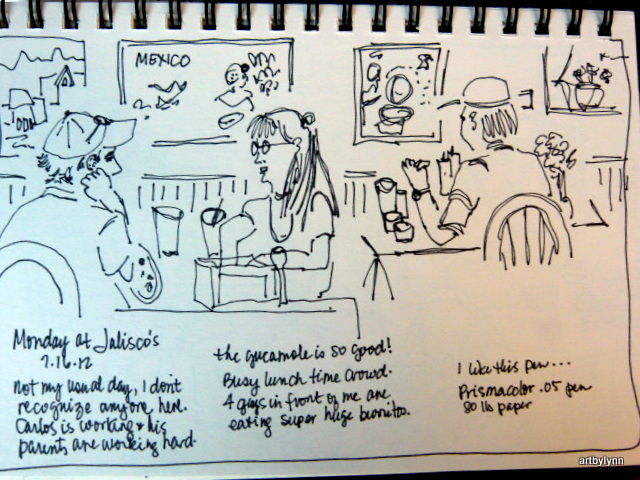 MEXICO
Monday at Jalisco's
7.16.12
not my usual day, I don't
recognize anyone here.
Carlos is working & his
parents are working hard.
the gucamole is so good!
Busy lunch time crowd.
4 guys in front of me are
eating super huge burritos.
I like this pen...
Prismacolor .05 pen
80 lb paper
artbylynn